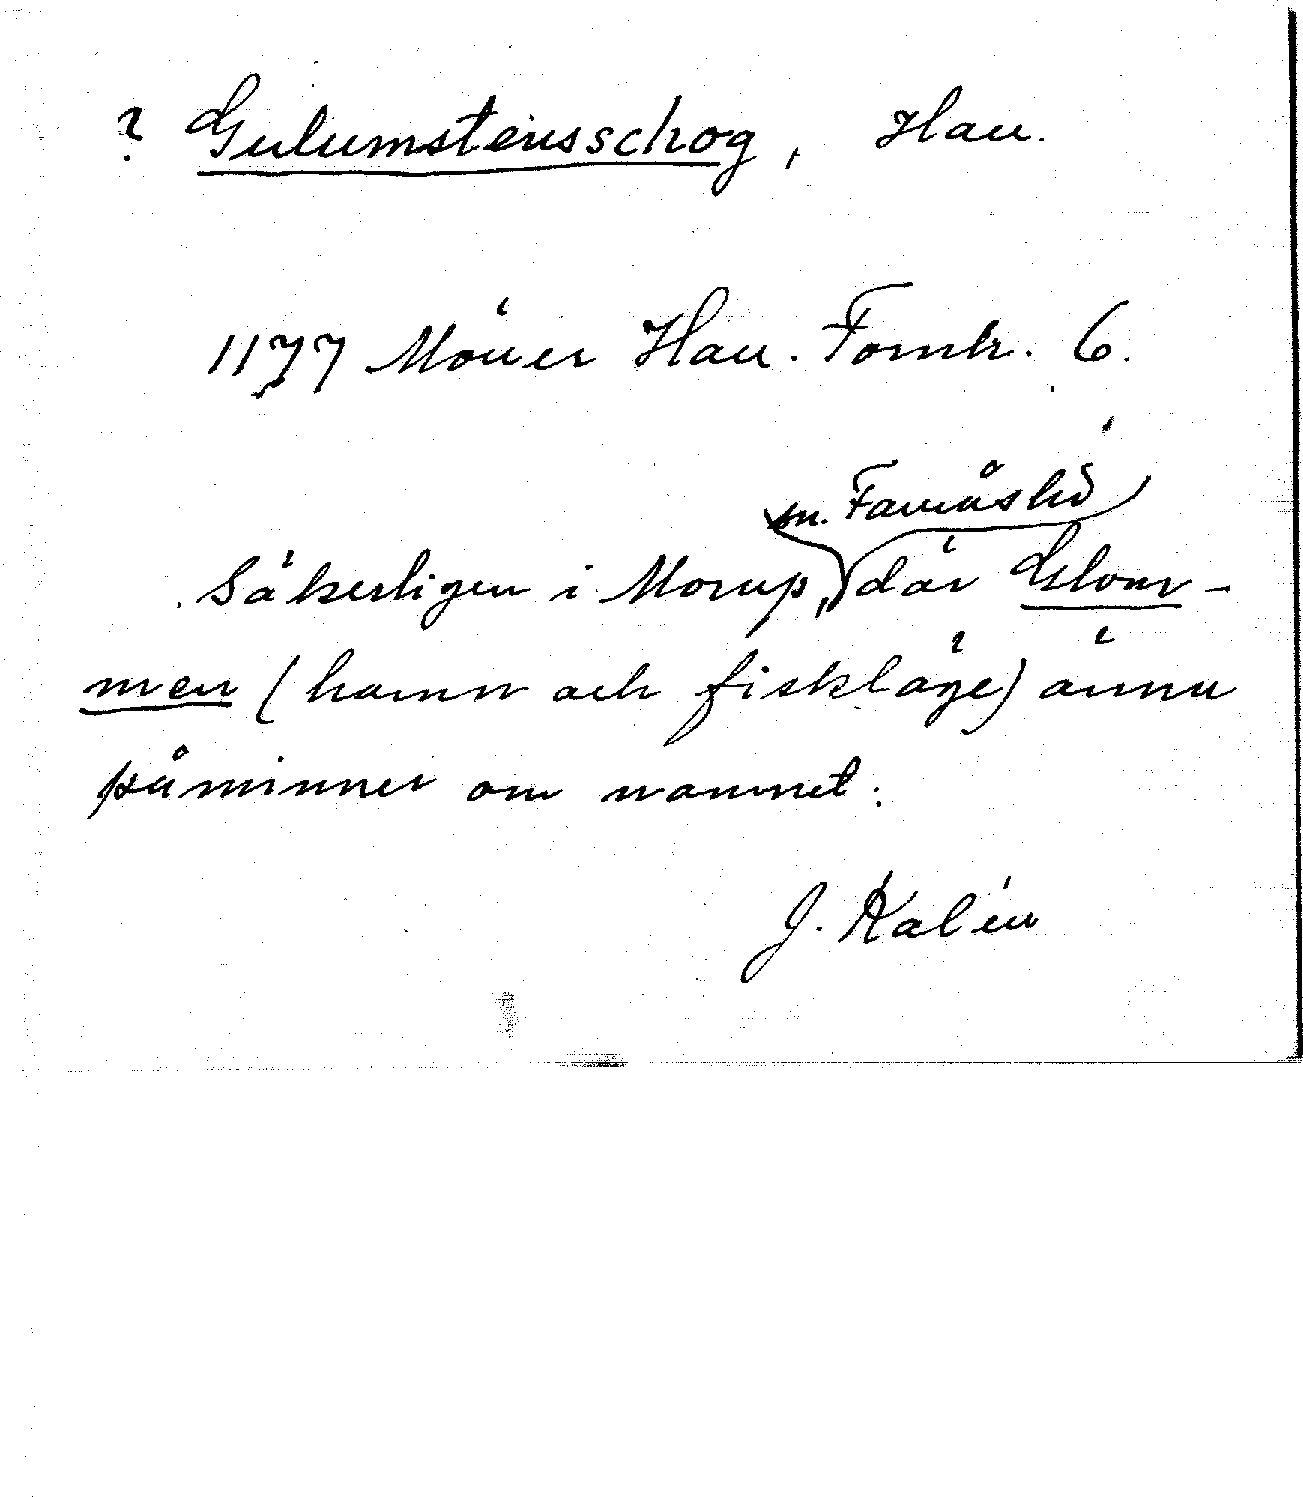 ? Gulumstensschog, Hall.
1177 Möller Hall. Fornh. 6.
m. Fauråshd
Säkerligen i Morup, där Glom-
men (hamn och fiskläge) ännu
påminner om namnet.
J. Kalén